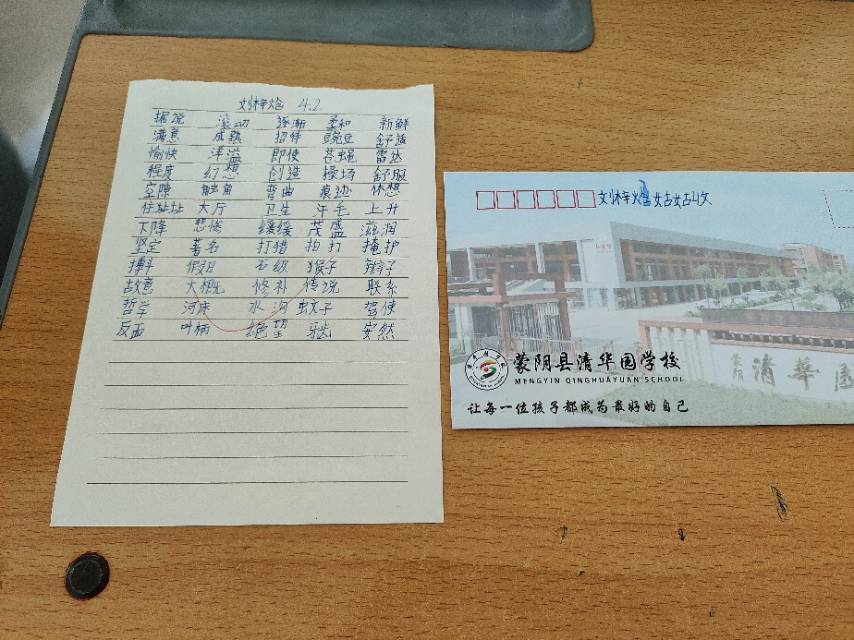 4.2
据说 滚动 逐渐 柔和 新鲜
满意 成熟 招待 豌豆 舒适
愉快 洋溢 即使 苍蝇 雷达
程度 幻想 创造 操场 舒服
空隙 触角 弯曲 痕迹 休想
住址 大厅 卫生 汗毛 上升
下降 悲惨 缓缓 茂盛 滋润
坚定 著名 打猎 拍打 掩护
搏斗 假日 石级 猴子 辫子
故意 大概 修补 传说 联系
哲学 河床 水沟 蚊子 驾使
反面 叶柄 绝望 安然
蒙阴县清华园学校
MENGYIN QINGHUAYUAN SCHOOL
让每一位孩子都成为最好的自己
蒙阴 清華園